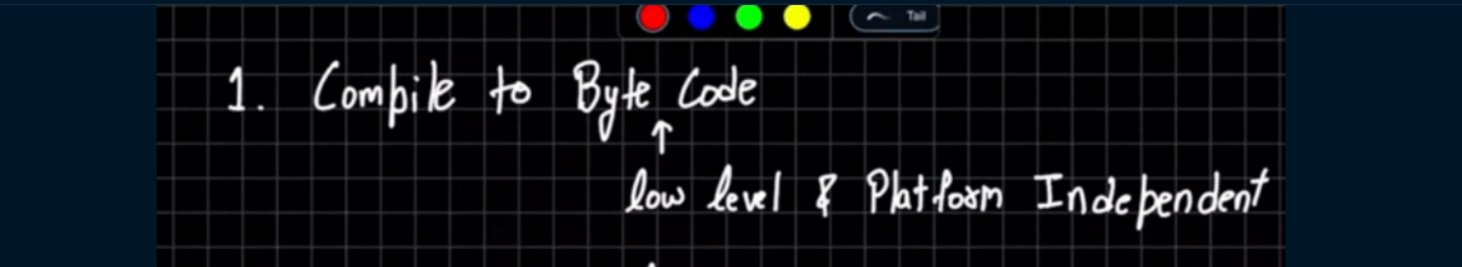 Tail
1. Compile to Byte Code
↑
low level & Platform Independent